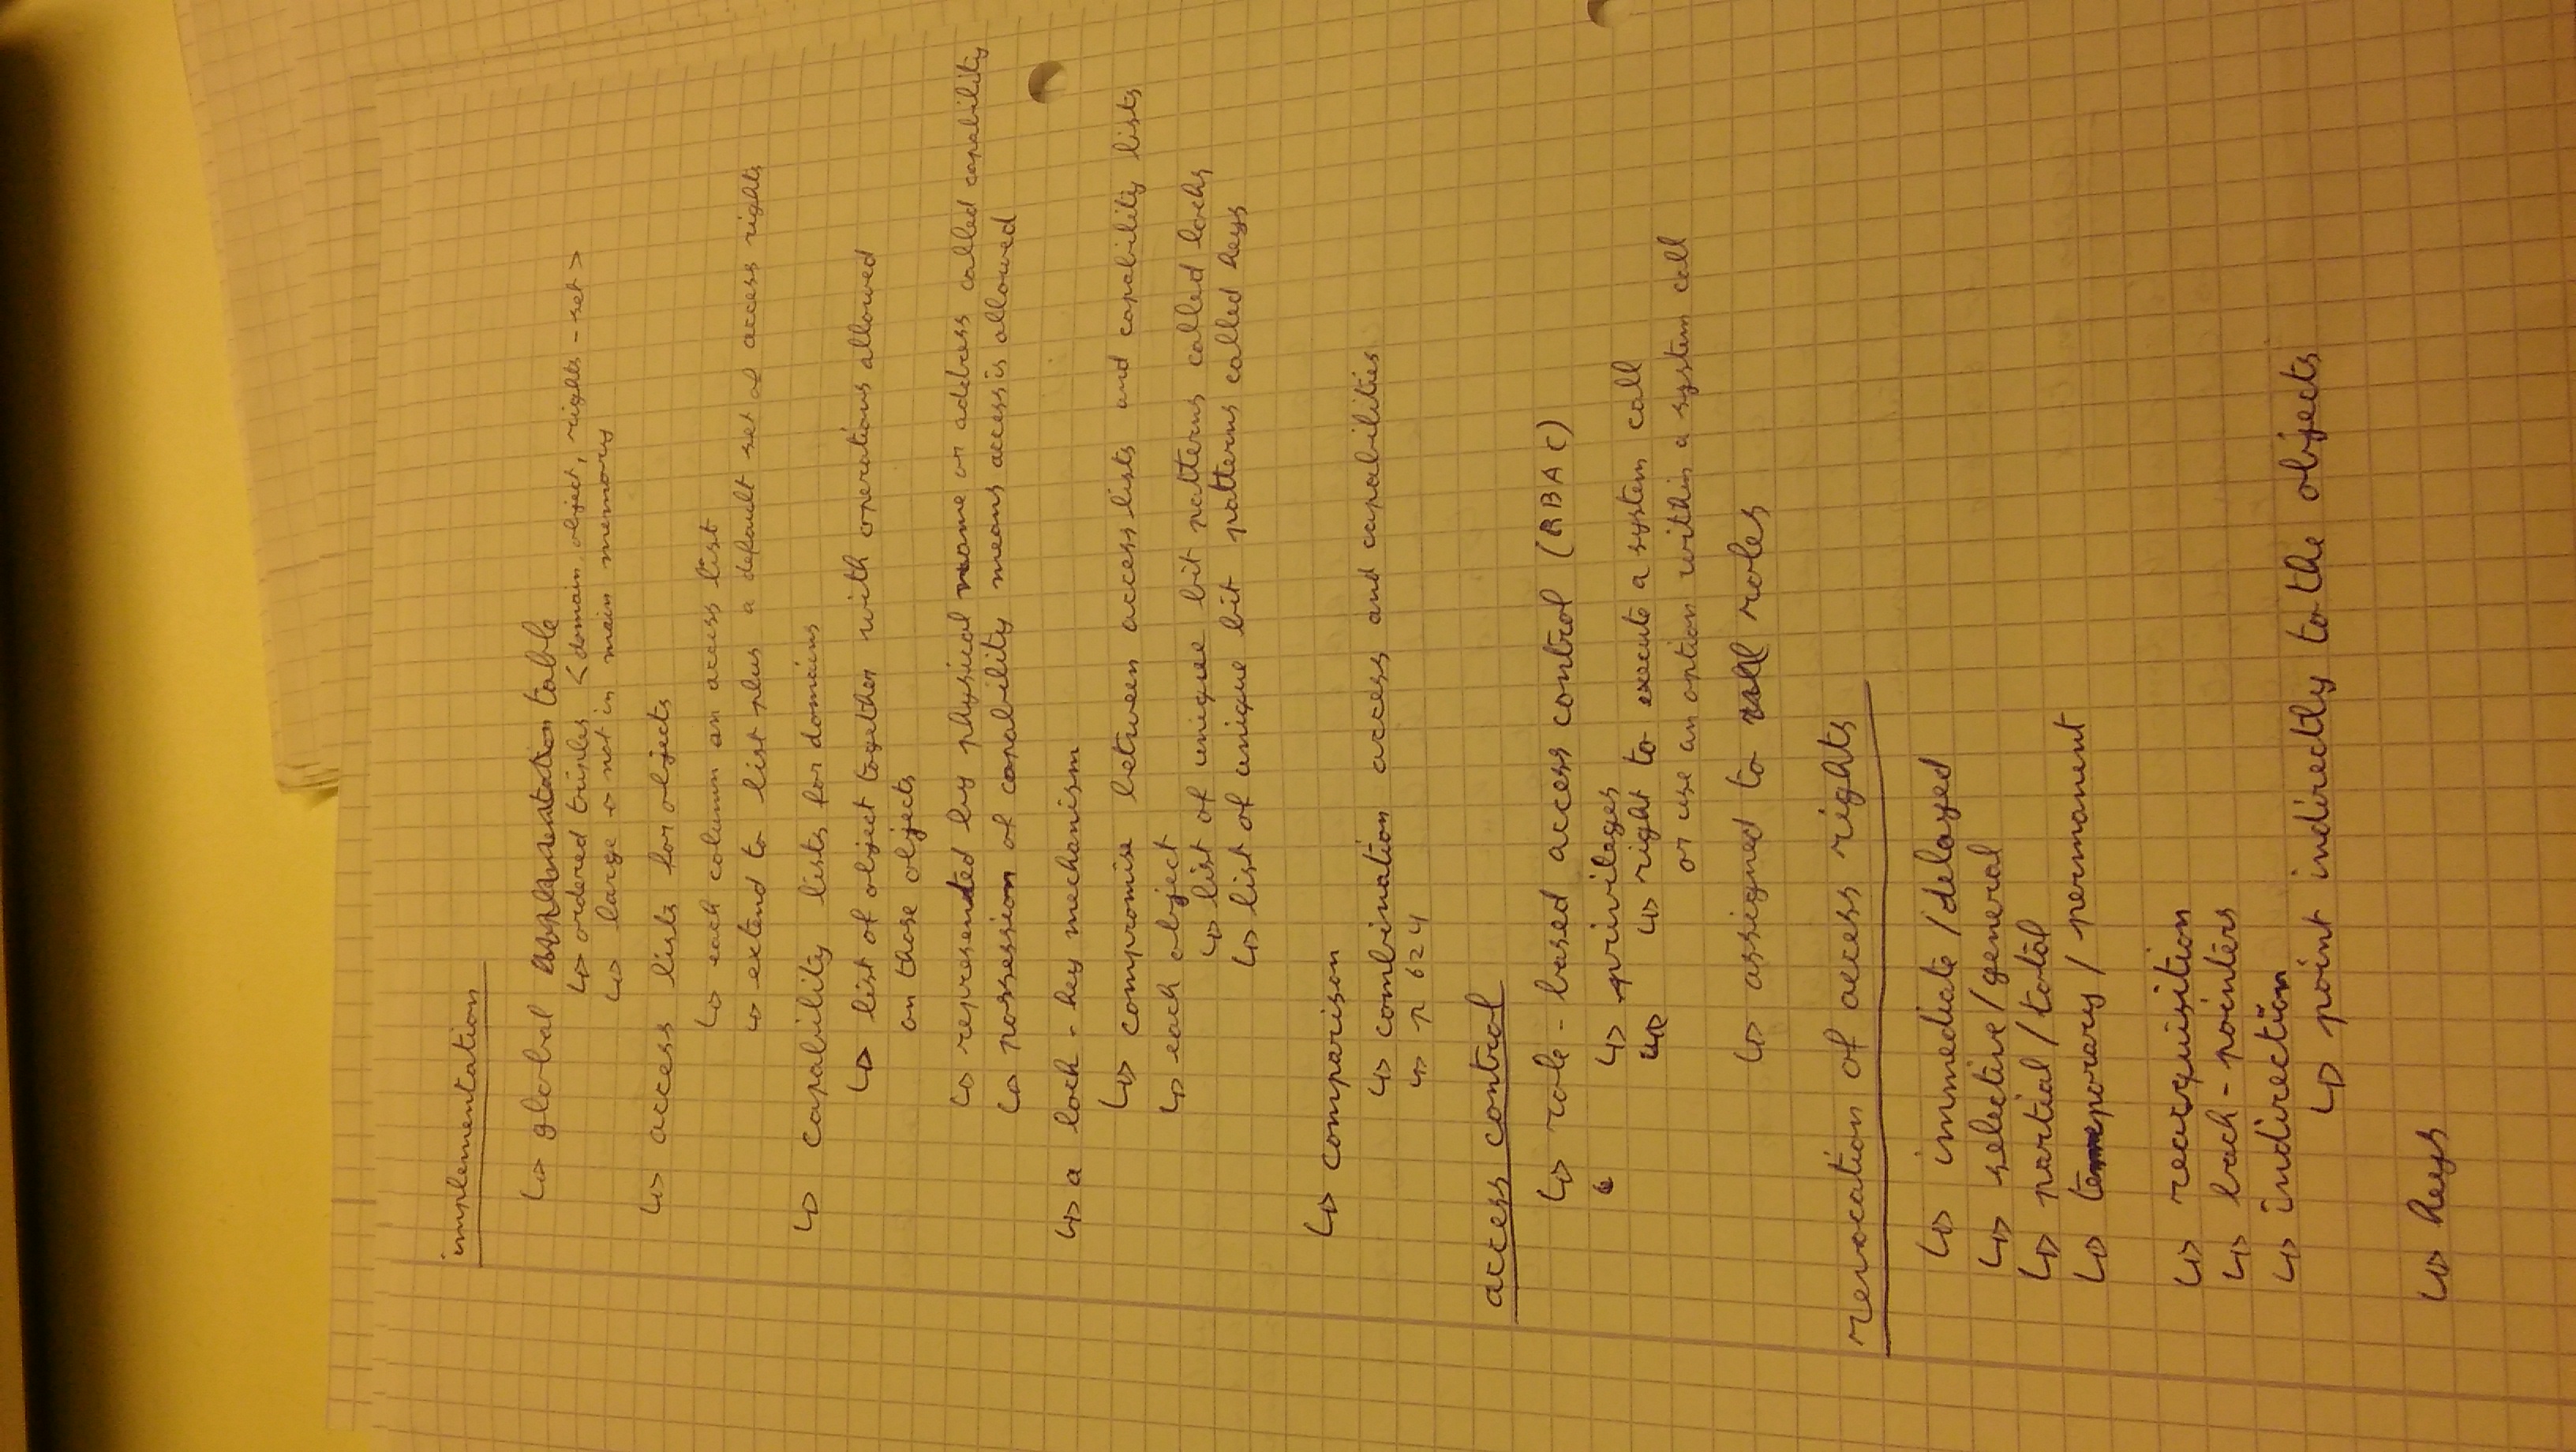 implementation
↳ global table
↳ ordered triples <domain, object, rights-set>
↳ large → not in main memory
↳ access lists for objects
↳ each column an access list
↳ extend to list plus a default set of access rights
↳ capability lists for domains
↳ list of object together with operations allowed
on those objects
↳ represented by physical name or address called capability
↳ possession of capability means access is allowed
↳ a lock-key mechanism
↳ compromise between access lists and capability lists
↳ each object
↳ list of unique bit patterns called locks
↳ list of unique bit patterns called keys
↳ comparison
↳ combination access and capabilities
↳ p 624
access control
↳ role-based access control (RBAC)
↳ privileges
↳ right to execute a system call
or use an option within a system call
↳ assigned to roles
revocation of access rights
↳ immediate/delayed
↳ selective/general
↳ partial/total
↳ temporary/permanent
↳ reacquisition
↳ back-pointers
↳ indirection
↳ point indirectly to the objects
↳ keys